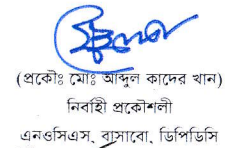 (প্রকৌঃ মোঃ আব্দুল কাদের খান)
নির্বাহী প্রকৌশলী
এনওসিএস, বাসাবো, ডিপিডিসি